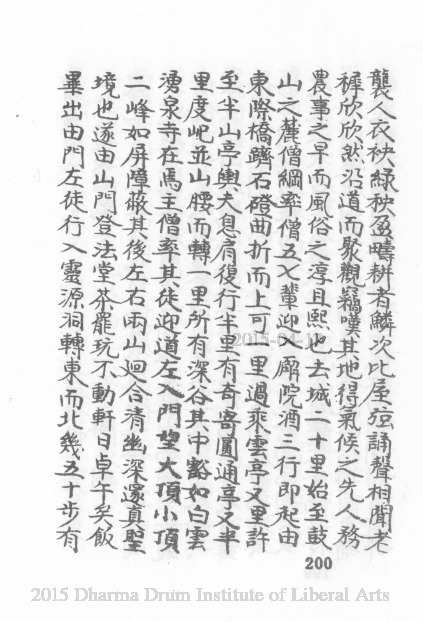 襲人衣袂綠秧盈疇耕者鱗次比屋弦誦聲相聞老
穉欣欣然沿道而聚觀竊嘆其地得氣候之先人務
農事之早而風俗之淳且熙也去城二十里始至鼓
山之麓僧綱率僧五七輩迎入廨院酒三行即起由
東際橋躋石磴曲折而上可一里過乘雲亭又里許
至半山亭輿夫息肩復行半里有奇寄圓通亭又半
里度岊並山腰而轉一里所有深谷其中豁如白雲
湧泉寺在焉主僧率其徒迎道左入門望大頂小頂
二峰如屏障蔽其後左右兩山迴合清幽深邃真聖
境也遂由山門登法堂茶罷玩不動軒日卓午矣飯
畢出由門左徒行入靈源洞轉東而北幾五十步有
200
2015 Dharma Drum Institute of Liberal Arts